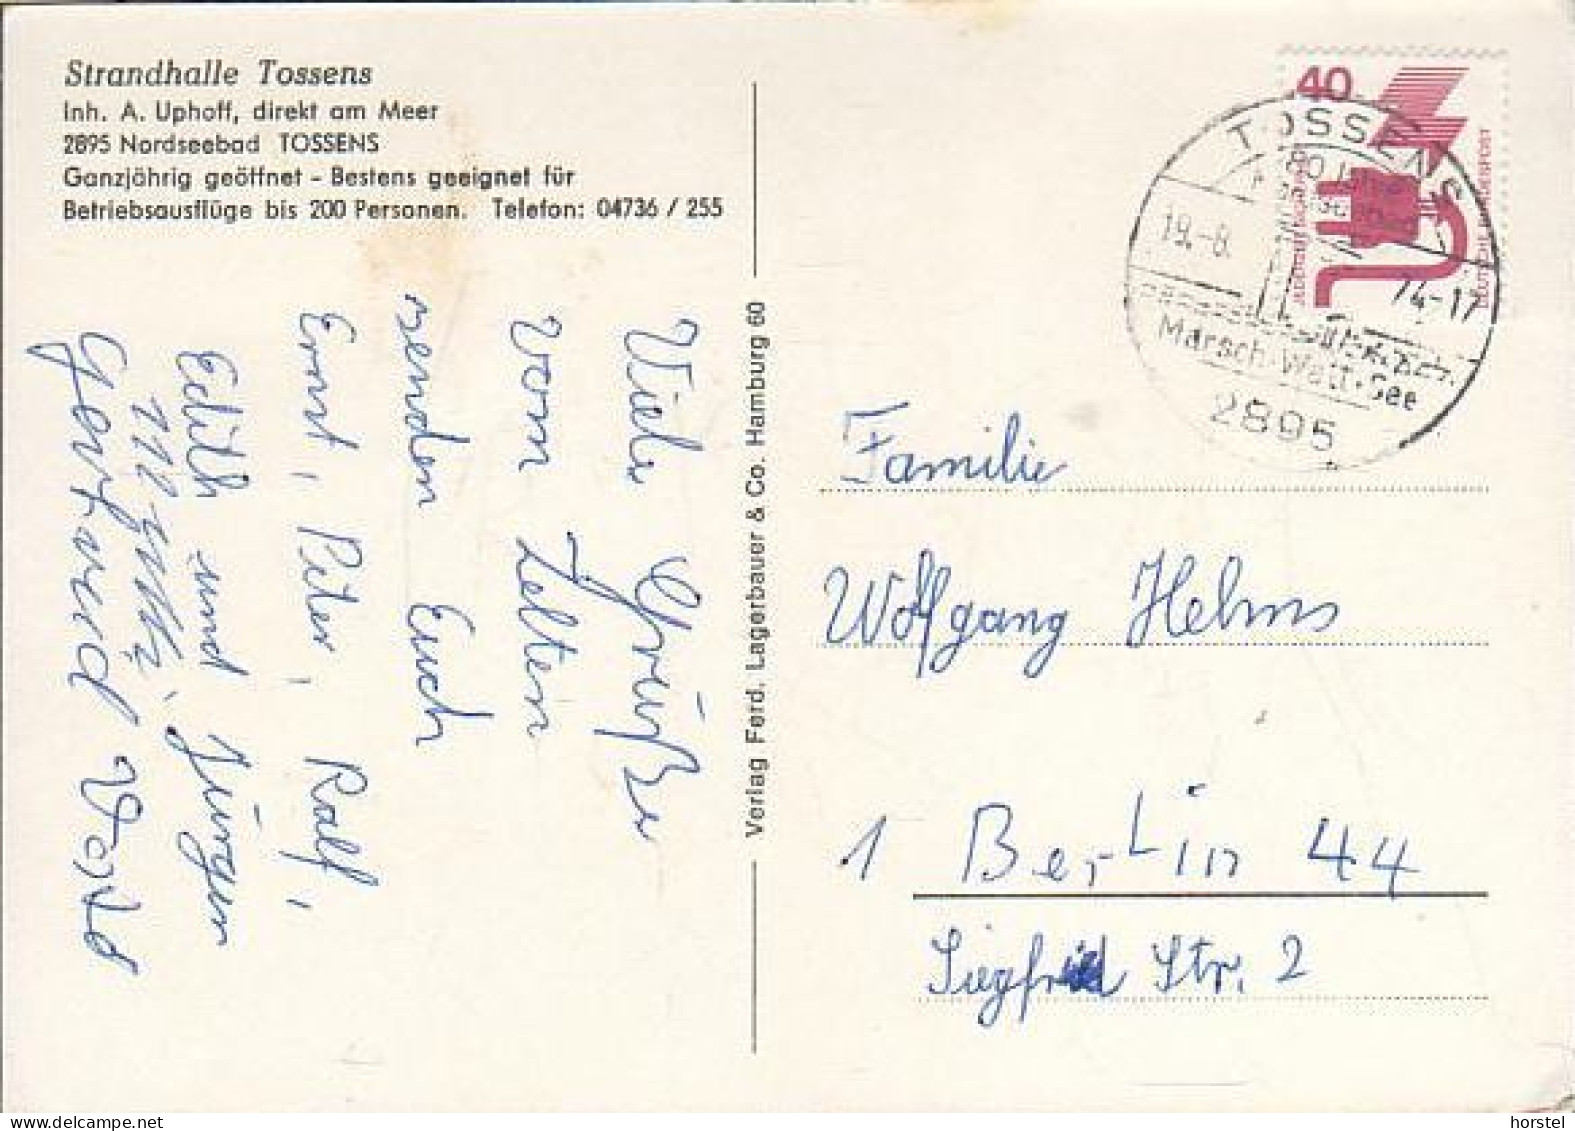 Strandhalle Tossens
Inh. A. Uphoff, direkt am Meer
2895 Nordseebad TOSSENS
Ganzjährig geöffnet - Bestens geeignet für
Betriebsausflüge bis 200 Personen. Telefon: 04736 / 255
Viele Grüße
vom Zelten
senden Euch
Ernst, Peter, Ralf,
Edith und Jürgen
Gertraud
Verlag Ferd. Lagerbauer & Co. Hamburg 60
40
DEUTSCHE BUNDESPOST
TOSSENS
19.-8. 74-17
Marsch·Watt·See
2895
Familie
Wolfgang Helms
1 Berlin 44
Siegfried Str. 2
© horstel / delcampe.net